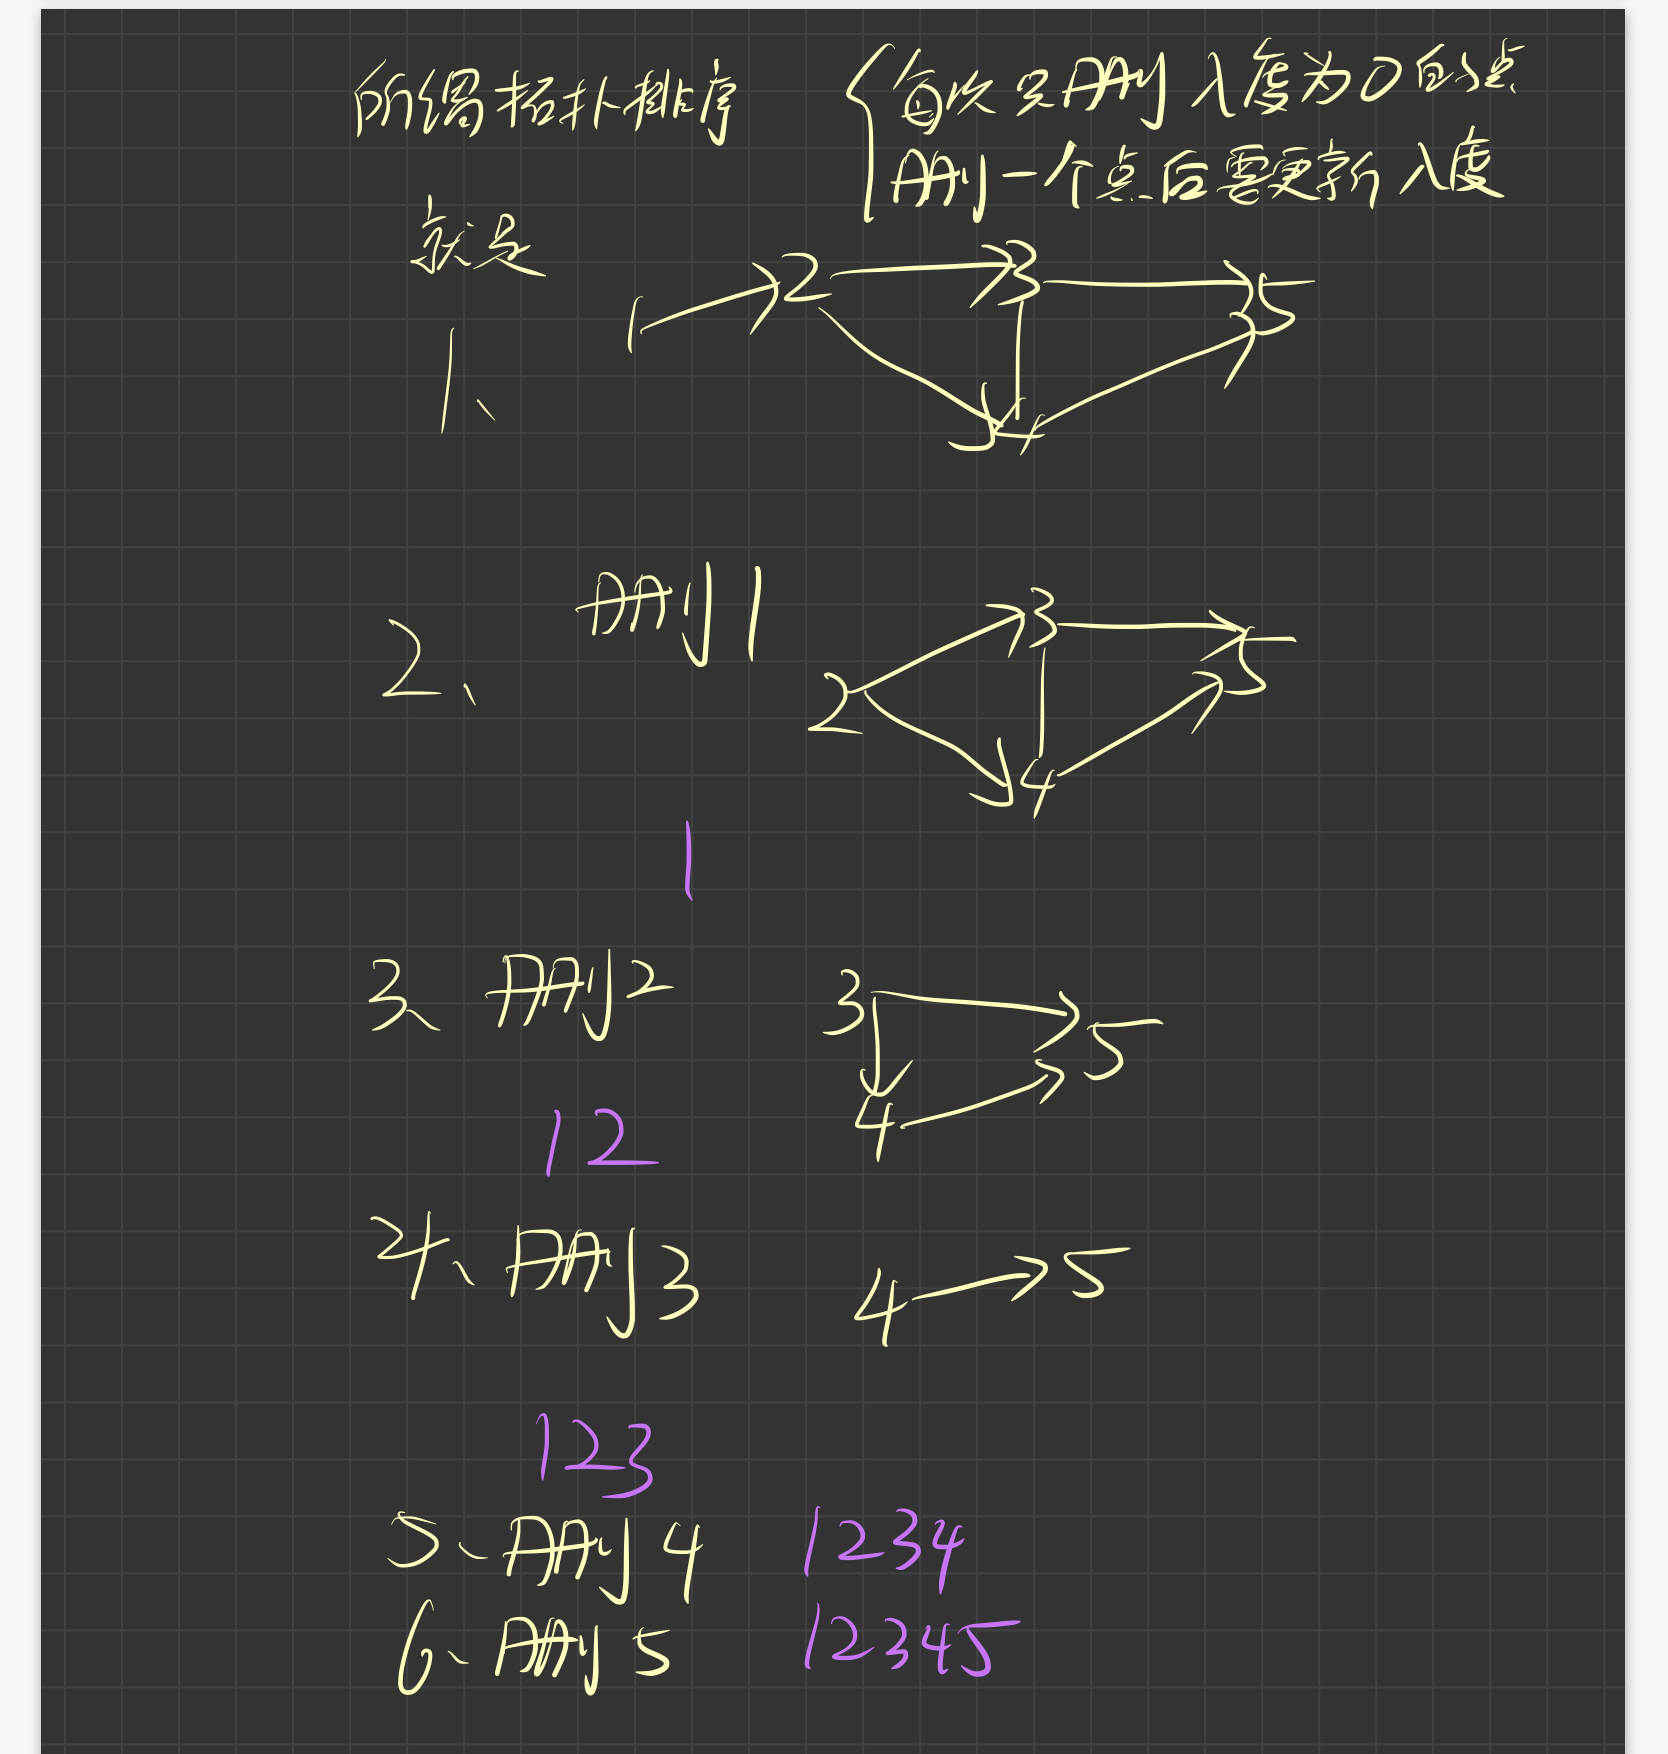 所谓拓扑排序
每次只删入度为0的点
删一个点后需更新入度
就是
1、
1 2 3 5
4
2、 删1
3 5
2
4
1
3、删2 3 5
4
12
4、删3 4 5
123
5、删4 1234
6、删5 12345